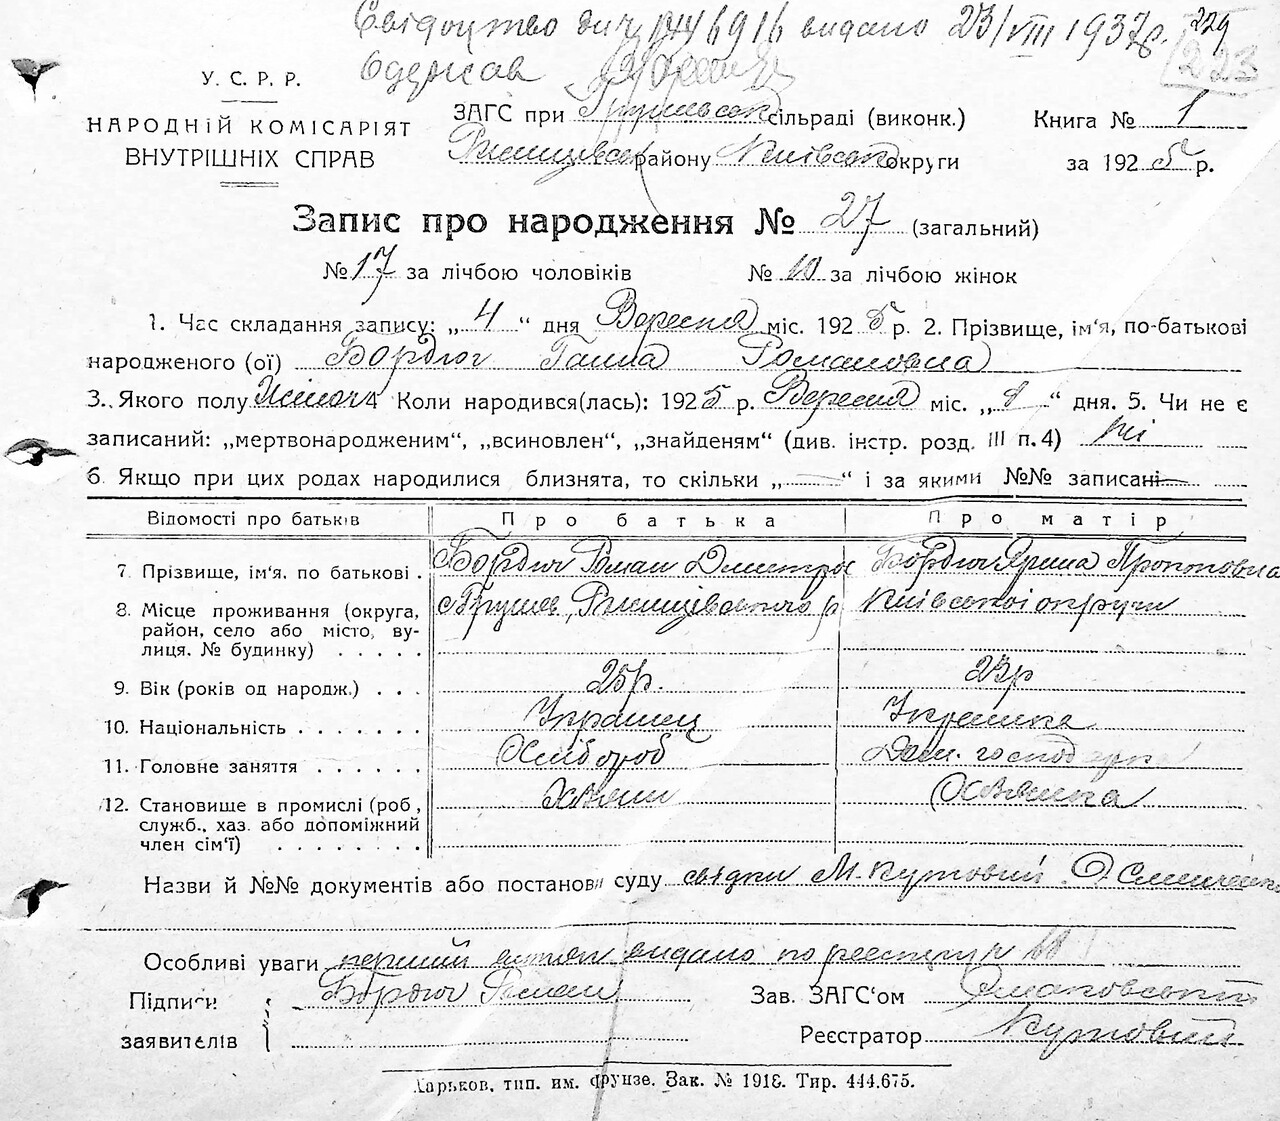 Свідоцтво видано 23/VIII 1937р. 229
Одержав 223
У. С. Р. Р.
НАРОДНІЙ КОМІСАРІЯТ
ВНУТРІШНІХ СПРАВ
ЗАГС при сільраді (виконк.)
району Київськ округи
Книга № 1
за 1925 р.
Запис про народження № 27 (загальний)
№ 17 за лічбою чоловіків № 10 за лічбою жінок
1. Час складання запису: „ 4 “ дня Вересня міс. 1925 р. 2. Прізвище, ім'я, по-батькові
народженого (ої) Бордюг Ганна Романовна
3. Якого полу Жіноч 4 Коли народився(лась): 1925 р. Вересня міс. „ “ дня. 5. Чи не є
записаний: „мертвонародженим“, „всиновлен“, „знайденям“ (див. інстр. розд. III п. 4) ні
6 Якщо при цих родах народилися близнята, то скільки „ — “ і за якими №№ записані —
Відомості про батьків Про батька Про матір
7. Прізвище, ім'я, по батькові . Бордюг Роман Дмитров Бордюг Ярина
8. Місце проживання (округа, Ржищівського р Київської округи
район, село або місто, ву-
лиця. № будинку) . . . . .
9. Вік (років од народж.) . . . 25р. 23р
10. Національність . . . . . . . Українец Українка
11. Головне заняття . . . . . . Хлібороб Дом. господарка
12. Становище в промислі (роб, Хазяин Хазяйка
служб., хаз. або допоміжний
член сім'ї) . . . . . . . .
Назви й №№ документів або постанови суду свідки М. Кутовий
Особливі уваги перший витяг видано по реестру №
Підписи Бордюг Роман Зав. ЗАГС'ом
заявителів Реєстратор Кутовий
Харьков, тип. им. Фрунзе. Зак. № 1918. Тир. 444.675.